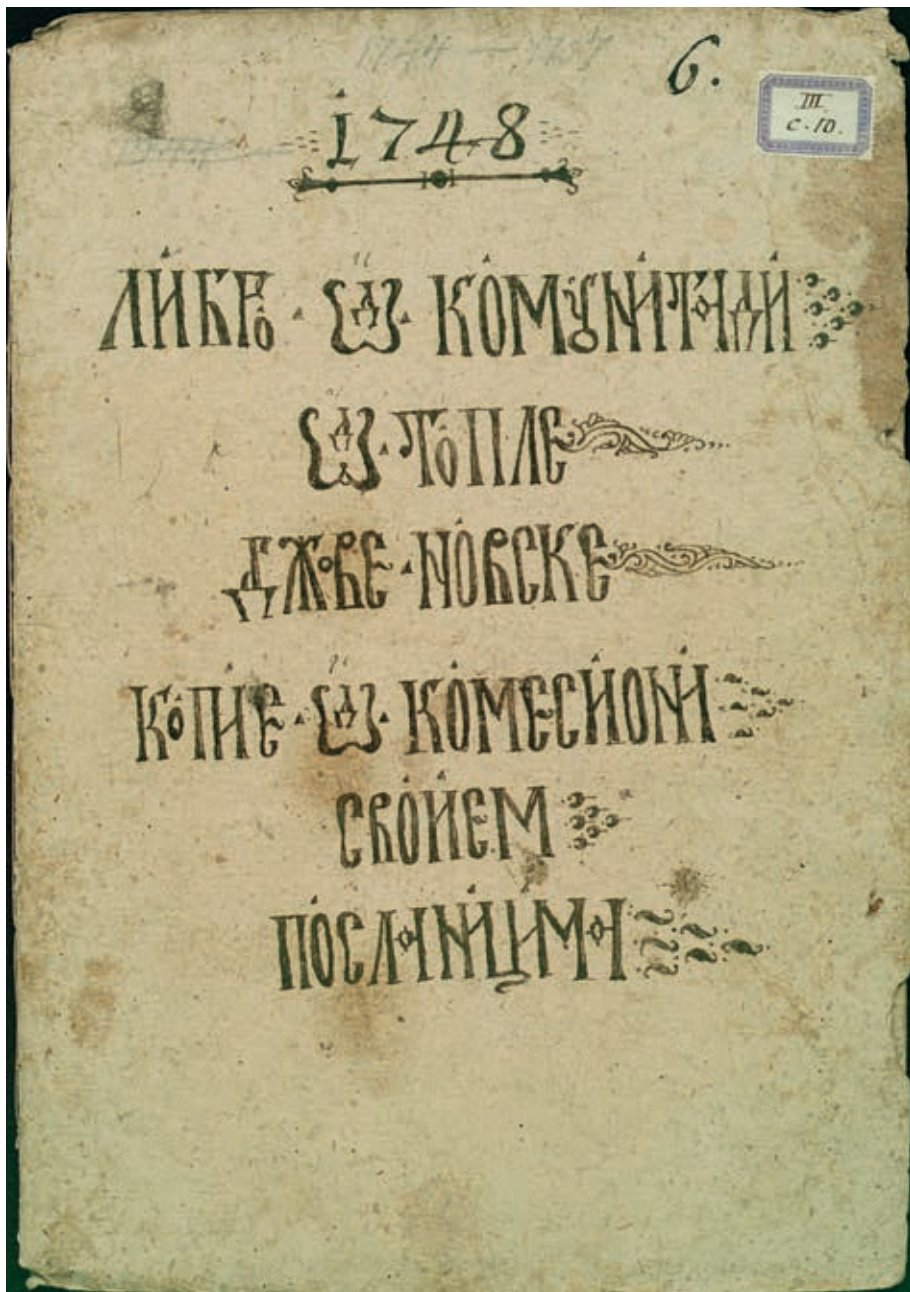 6.
III
c. 10.
1748
ЛИБРО · Ѿ · КОМꙋНИТАДИ
Ѿ · ТОПЛЕ
ДЖВЕ · НОВСКЕ
КОПИЕ · Ѿ · КОМЕСИОНИ
СВОИЕМ
ПОСЛАНИЦИМА